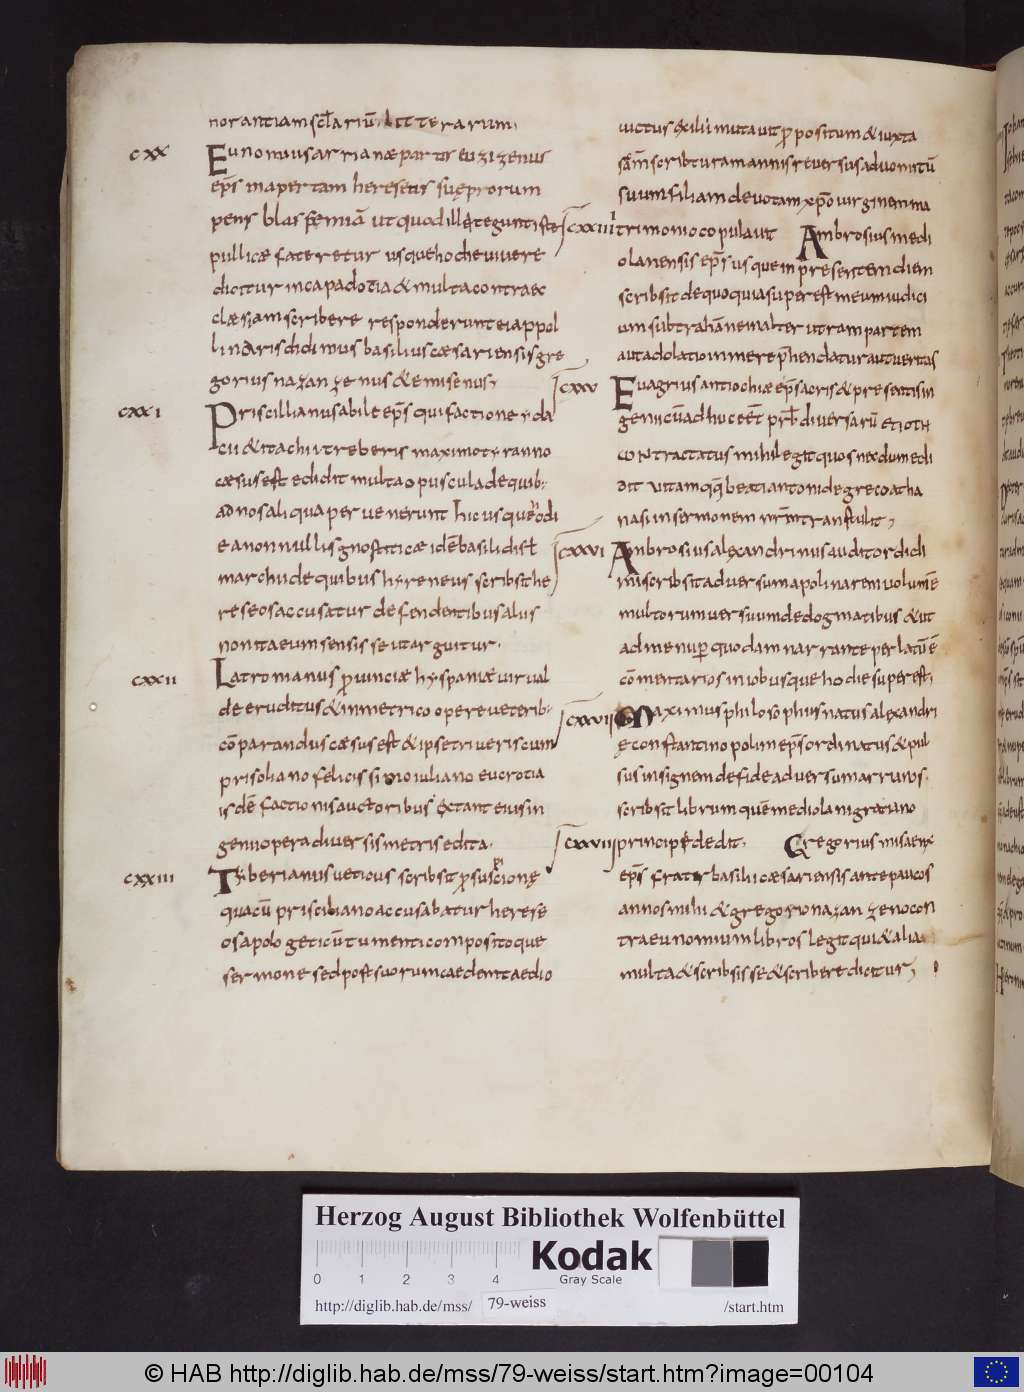 norantiam scł̄ariū litterarum.
cxx
Eunomius arrianæ partis euzizenus
ep̄s inapertam heresens suę prorum
pens blasfemiā ut quod illi tegunt iste
pullicæ fateretur usque hodie vivere
dicitur incapadotia & multa contra ec
clæsiam scribere responderunt ei appol
linaris didimus basilius cæsariensis gre
gorius nazanzenus & emisenus,
cxxi
Priscillianus abile ep̄s qui factione yda
cii & itachii treberis maximo tyranno
cæsus est edidit multa opuscula de quib;
ad nos aliqua pervenerunt hic usque odi
e anonnullis gnostiticæ idē basilidis ł
marchii de quibus hyreneus scribsit he
reseos accusatur defendentibus alus
non ita eum sensisse ut arguitur.
cxxii
Latromanus pruinciæ hyspaniæ vir val
de eruditus & inmetrico opere veterib;
cōparandus cæsus est & ipse triveris cum
prisoliano felicissimo iuliano eucrotia
isdē factionis auctoribus extant eius in
genii opera diversis metris edita.
cxxiii
Tyberianus veticus scribsit p suspicionę
qua cū prisciliano accusabatur herese
os apologeticū tumenti compositoque
sermone sed post suorum cædem tædio
victus exilii mutavit ppositum & iuxta
sc̄am scribturam cannis reversus ad vomitū
suum filiam devotam xp̄o virginem ma
cxxiiii
trimonio copulavit Ambrosius medi
olanensis ep̄s usque in presentem diem
scribsit de quo quia superest meum iudici
um subtrahā ne in alterutram partem
aut adolatio in me reprhendatur aut veritas
cxxv
Evagrius antiochiæ ep̄s acris & presentis in
genii cū adhuc eēt prb̄ diversarū etioth
contractatus mihi legit quos necdum edi
dit vitam quoq; beati antonii de greco atha
nasii in sermonem nr̄m transtulit,
cxxvi
Ambrosius alexandrinus auditor didi
mi scribsit adversum apolinarem volumē
multorum versuum de dogmatibus & ut
ad me nup quodam narrante perlatū ē
cōmentarios in iob usque hodie superest,
cxxvii
Maximus philosophus natus alexandri
ę constantinopolim ep̄s ordinatus & pul
sus insignem de fide adversum arrianos.
scribsit librum quem mediolani gratiano
cxxviii
principe dedit. Gregorius nisaenx
ep̄s frater basilii cæsariensis ante paucos
annos mihi & gregorio nazanzeno con
tra eunomium libros legit qui & alia
multa & scribsisse & scribere dicitur,
Herzog August Bibliothek Wolfenbüttel
0 1 2 3 4
Kodak
Gray Scale
http://diglib.hab.de/mss/ 79-weiss /start.htm
© HAB http://diglib.hab.de/mss/79-weiss/start.htm?image=00104